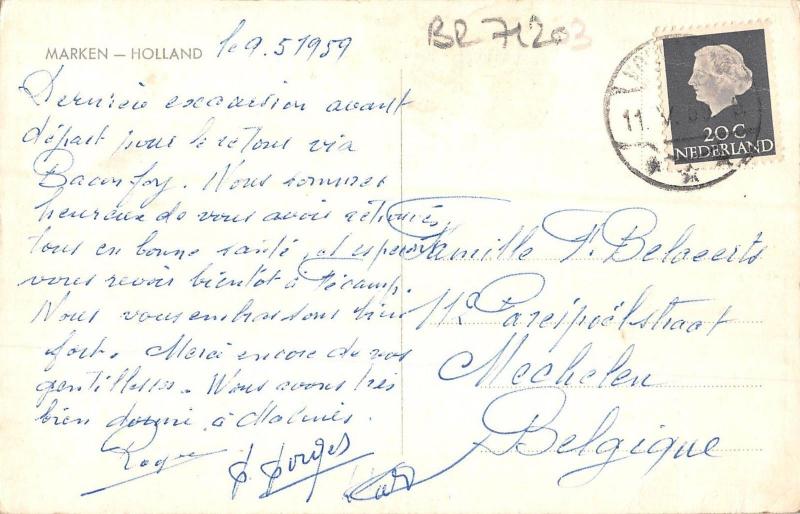 MARKEN — HOLLAND
le 9.5 1959
BR 71203
Dernière excursion avant
départ pour le retour via
Nous sommes
heureux de vous avoir retrouvés
tous en bonne santé, et espérons
vous revoir bientôt à Fécamp.
Nous vous embrassons bien
fort. Merci encore de vos
gentillesses. Nous avons très
bien dormi à Malines.
Famille F. Belaerts
11a
Mechelen
Belgique
11.V.59
20 C
NEDERLAND